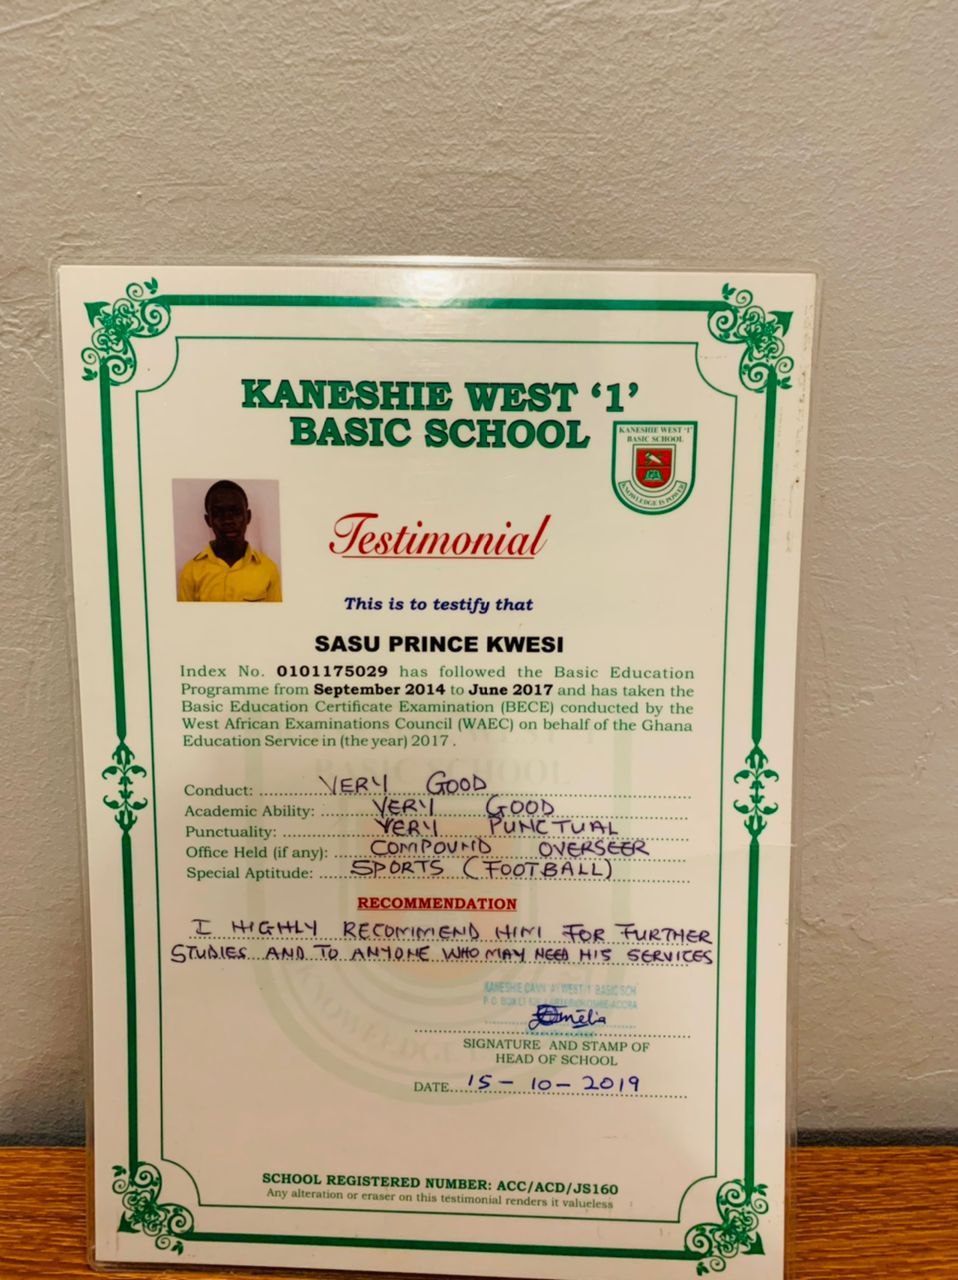 KANESHIE WEST ‘1’
BASIC SCHOOL
KANESHIE WEST '1'
BASIC SCHOOL
KNOWLEDGE IS POWER
Testimonial
This is to testify that
SASU PRINCE KWESI
Index No. 0101175029 has followed the Basic Education
Programme from September 2014 to June 2017 and has taken the
Basic Education Certificate Examination (BECE) conducted by the
West African Examinations Council (WAEC) on behalf of the Ghana
Education Service in (the year) 2017.
Conduct: VERY GOOD
Academic Ability: VERY GOOD
Punctuality: VERY PUNCTUAL
Office Held (if any): COMPOUND OVERSEER
Special Aptitude: SPORTS (FOOTBALL)
RECOMMENDATION
I HIGHLY RECOMMEND HIM FOR FURTHER
STUDIES AND TO ANYONE WHO MAY NEED HIS SERVICES
KANESHIE WEST BASIC SCH
P. O. BOX ACCRA
SIGNATURE AND STAMP OF
HEAD OF SCHOOL
DATE 15 - 10 - 2019
SCHOOL REGISTERED NUMBER: ACC/ACD/JS160
Any alteration or eraser on this testimonial renders it valueless